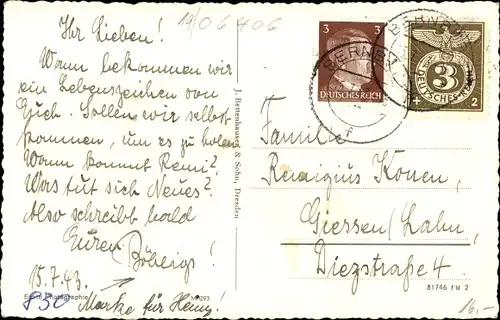 19/06406
Ihr Lieben!
Wann bekommen wir
ein Lebenszeichen von
Euch. Sollen wir selbst
kommen, um es zu holen
Wann kommt Remi?
Was tut sich Neues?
Also schreibt bald
Euren
15.7.43.
Marke für Heinz!
850
Echte Photographie
M 293
J. Bettenhausen & Sohn, Dresden
3 3
DEUTSCHES REICH
BERNBURG
3
DEUTSCHES REICH
+ 2
Familie
Remigius Konen,
Giessen/Lahn,
Diezstraße 4.
81746
16,-